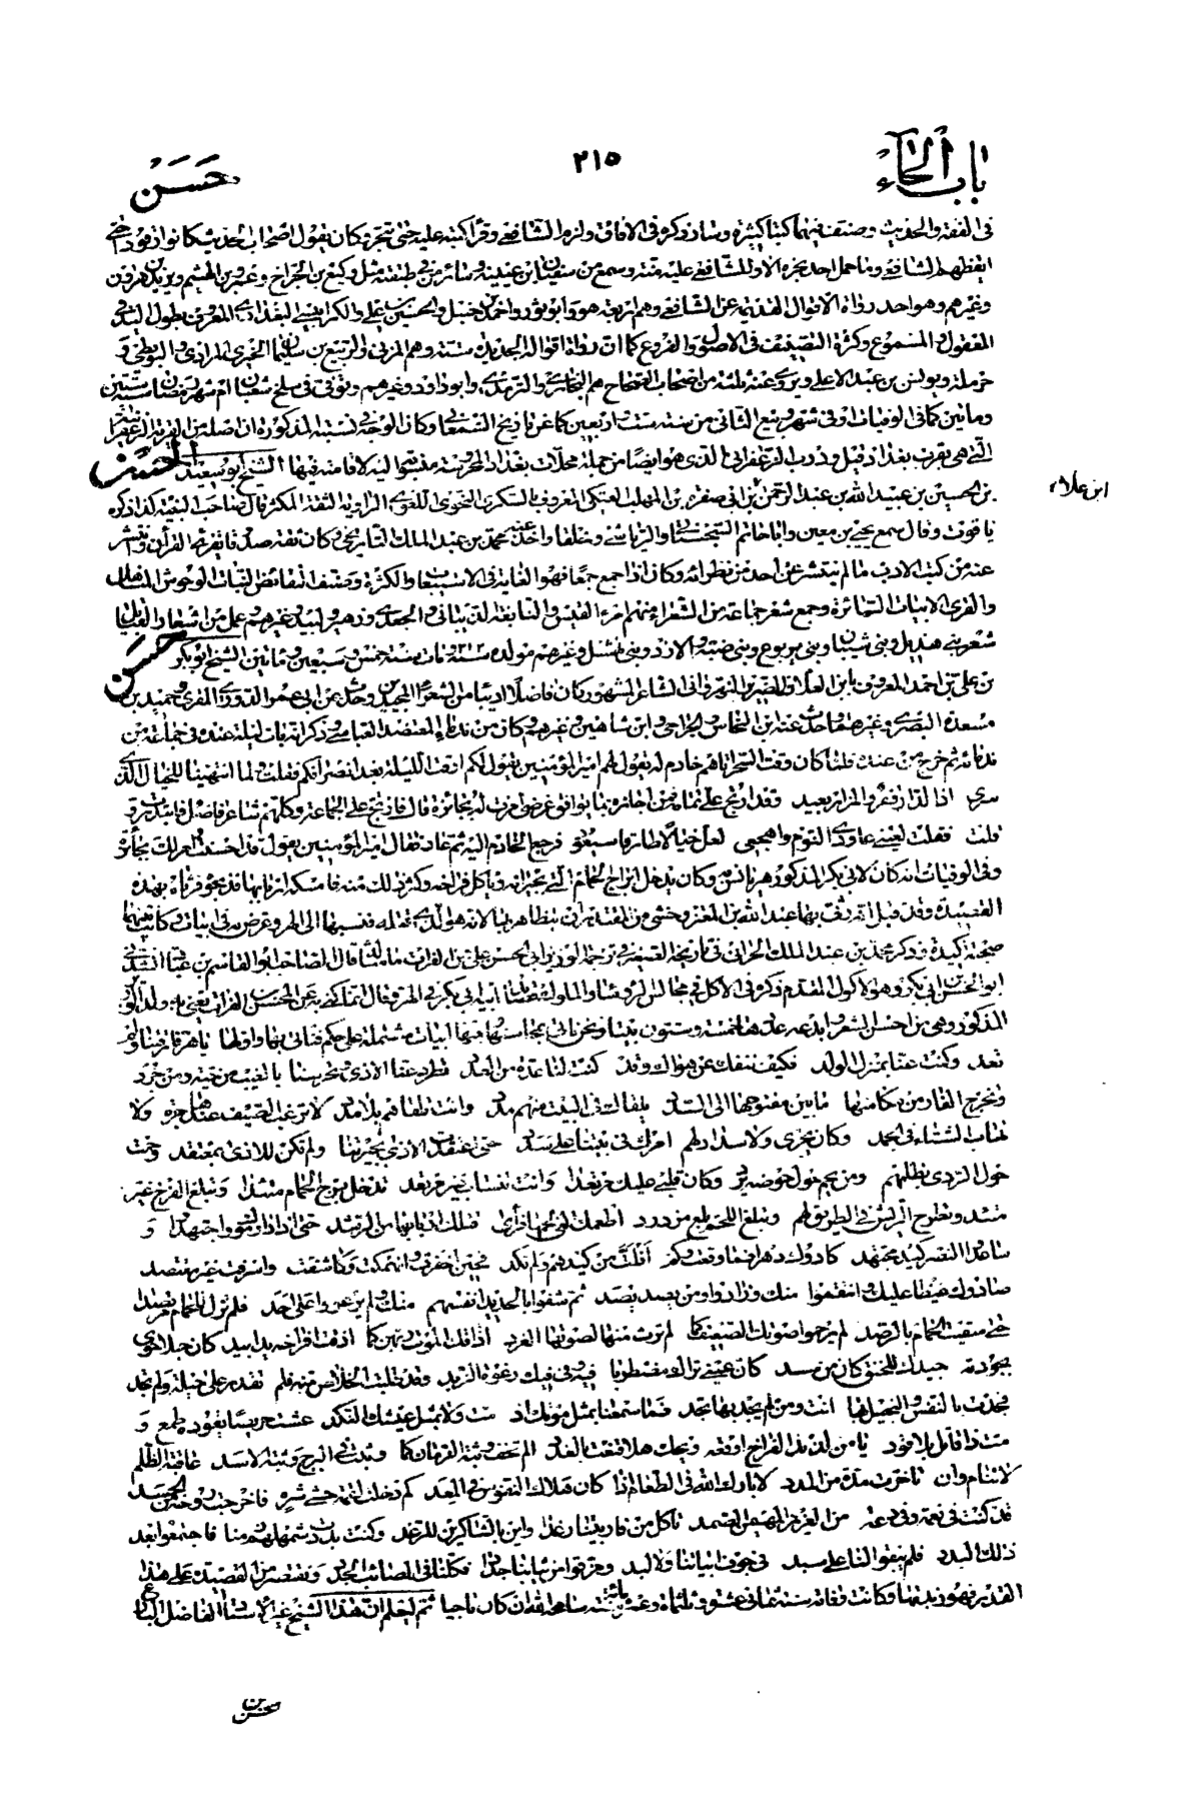 باب الحاء
٢١٥
حسن
فى الفقه والحديث وصنف فيهما كتبا كثيرة وسار ذكره فى الافاق ولزم الشافعى وقرأ كتبه عليه حتى تبحر وكان يقول اصحاب الحديث كانوا رقودا حتى
ايقظهم الشافعى وما حمل احد محبرة الا وللشافعى عليه منة وسمع من سفيان بن عيينة وسائر من فى طبقته مثل وكيع بن الجراح وعمرو بن الهيثم ويزيد بن هرون
وغيرهم وهو احد رواة الاقوال القديمة عن الشافعى وهم اربعة هو وابو ثور واحمد بن حنبل والحسين بن على والكرابيسى البغدادى المعروف بطول اليد فى
المعقول والمسموع وكثرة التصنيف فى الاصول والفروع كما ان رواة اقواله الجديدة ستة وهم المزنى والربيع بن سليمان الجيزى والمرادى والبويطى و
حرملة ويونس بن عبد الاعلى ويروى عنه ثلثة من اصحاب الصحاح هم البخارى والترمذى وابو داود وغيرهم وتوفى فى سلخ شعبان ام شهر رمضان سنة ستين
ومأتين كما فى الوفيات او فى شهر ربيع الثانى من سنة ست واربعين كما عن تاريخ السمعانى وكان الوجه فى نسبته المذكورة ان اصله من القرية الزعفرانية
التى هى بقرب بغداد قيل ودرب الزعفرانى الذى هو ايضا من جملة محلات بغداد المحروسة منسوب اليه لاقامته فيها الشيخ ابو سعيد الحسن
بن الحسين بن عبيد الله بن عبد الرحمن بن ابى صفرة بن المهلب العتكى المعروف بالسكرى النحوى اللغوى الراوية الثقة المكثر قال صاحب البغية كذا ذكره
ياقوت وقال سمع يحيى بن معين وابا حاتم السجستانى والرياشى وخلقا واخذ عنه محمد بن عبد الملك التاريخى وكان ثقة صدقا يقرئ القرآن وانتشر
عنه من كتب الادب ما لم ينتشر عن احد من نظرائه وكان اذا جمع جمعا فهو الغاية فى الاستيعاب والكثرة وصنف النقائض النبات الوحوش المناهل
والقرى الابيات السائرة وجمع شعر جماعة من الشعراء منهم امرء القيس والنابغة الذبيانى والجعدى وزهير ولبيد وغيرهم وعمل من اشعار القبائل
شعر بنى هذيل وبنى شيبان وبنى يربوع وبنى ضبة والازد وبنى نهشل وغيرهم مولده سنة ٢١٢ ومات سنة خمس وسبعين ومأتين الشيخ ابو بكر حسن
بن على بن احمد المعروف بابن العلاف الضرير النهروانى الشاعر المشهور كان فاضلا اديبا من الشعراء المجيدين وحدث عن ابى عمرو الدورى المقرى وحميد بن
ابن علاف
مسعدة البصرى وغيرهما وحدث عنه ابن النخاس والجراحى وابن شاهين وغيرهم وكان من ندماء المعتضد العباسى وذكر انه بات ليلة عنده فى جماعة من
ندمائه ثم خرج من عنده فلما كان وقت السحر اتاهم خادم له يقول لهم امير المؤمنين يقول لكم ارقت الليلة بعد انصرافكم فقلت ولما انتهينا للخيال الذى
سرى اذا الدار قفر والمزار بعيد وقد ارتج على تمامه فمن اجازه بما يوافق غرضى امرت له بجائزة قال فارتج على الجماعة وكلهم شاعر فاضل فابتدرت و
قلت فقلت لعينى عاودى النوم واهجعى لعل خيالا طارقا سيعود فرجع الخادم اليه ثم عاد فقال امير المؤمنين يقول قد احسنت امر لك بجائزة
وفى الوفيات انه كان لابى بكر المذكور هر يانس به وكان يدخل ابراج الحمام التى لجيرانه وياكل فراخه وكثر ذلك منه فامسكه اربابها فذبحوه فرثاه بهذه
القصيدة وقد قيل انه رثى بها عبد الله بن المعتز وخشى من المقتدر ان يتظاهر بها لانه هو الذى قتله فنسبها الى الهر وعرض به فى ابيات وكانت بينهما
صحبة اكيدة وذكر محمد بن عبد الملك الهمدانى فى تاريخه الصغير فى ترجمة الوزير ابى الحسن على بن الفرات ما مثاله قال الصاحب ابو القاسم بن عباد انشدنى
ابو الحسن بن ابى بكر وهو الاكول المقدم ذكره فى الاكل فى مجالس الرؤساء والملوك قصيدة ابيه ابى بكر فى الهر وقال انما كنى به عن المحسن بن الفرات يعنى به ولد الوزير
المذكور وهى من احسن الشعر وابدعه عددها خمسة وستون بيتا ونحن ناتى بمحاسنها وفيها ابيات مشتملة على حكم فناتى بها واولها يا هر فارقتنا ولم
تعد وكنت عندنا بمنزل الولد فكيف ننفك عن هواك وقد كنت لنا عدة من العدد تطرد عنا الاذى وتحرسنا بالغيب من حية ومن جرد
وتخرج الفار من مكامنها ما بين مفتوحها الى السدد يلقاك فى البيت منهم مدد وانت تلقاهم بلا مدد لا ترهب الصيف عند هاجرة ولا
تهاب الشتاء فى الجمد وكان يجرى ولا سداد لهم امرك فى بيتنا على سدد حتى اعتقدت الاذى لجيرتنا ولم تكن للاذى بمعتقد وحمت
حول الردى بظلمهم ومن يحم حول حوضه يرد وكان قلبى عليك مرتعدا وانت تنساب غير مرتعد تدخل برج الحمام متئدا وتبلع الفرخ غير
متئد وتطرح الريش فى الطريق لهم وتبلع اللحم بلع مزدرد اطعمك الغى لحمها فرأى قتلك اربابها من الرشد حتى اذا داوموك واجتهدوا و
ساعد النصر كيد مجتهد كادوك دهرا فما وقعت وكم افلت من كيدهم ولم تكد فحين اخفرت وانهمكت وكاشفت واسرفت غير مقتصد
صادوك غيظا عليك وانتقموا منك وزادوا ومن يصد يصد ثم شفوا بالحديد انفسهم منك ولم يرعووا على احد فلم تزل للحمام مرتصدا
حتى سقيت الحمام بالرصد لم يرحموا صوتك الضعيف كما لم ترث منها لصوتها الغرد اذاقك الموت ربهن كما اذقت افراخه يدا بيد كان حبلا حوى
بجودته جيدك للخنق كان من مسد كان عينى تراك مضطربا فيه وفى فيك رغوة الزبد وقد طلبت الخلاص منه فلم تقدر على حيلة ولم تجد
فجدت بالنفس والبخيل بها انت ومن لم يجد بها يجد فما سمعنا بمثل موتك اذ مت ولا مثل عيشك النكد عشت حريصا يقوده طمع و
مت ذا قاتل بلا قود يا من لذيذ الفراخ اوقعه ويحك هلا قنعت بالغدد الم تخف وثبة الزمان كما وثبت فى البرج وثبة الاسد عاقبة الظلم
لا تنام وان تاخرت مدة من المدد لا بارك الله فى الطعام اذا كان هلاك النفوس فى المعد كم دخلت لقمة حشى شره فاخرجت روحه من الجسد
قد كنت فى نعمة وفى دعة من العزيز المهيمن الصمد تاكل من فار بيتنا رغدا واين بالشاكرين للرغد وكنت بددت شملهم زمنا فاجتمعوا بعد
ذلك البدد فلم يبقوا لنا على سبد فى جوف ابياتنا ولا لبد ومزقوا من ثيابنا جددا فكلنا فى المصائب الجدد ونقتصر من القصيدة على هذا
القدر فهو زبدتها وكانت وفاته سنة ثمانى عشرة وثلثمائة وعمره مائة سنة سامحه الله ان كان ناجيا ثم ليعلم ان هذا الشيخ غير الاستاد الفاضل البارع
حسن بن